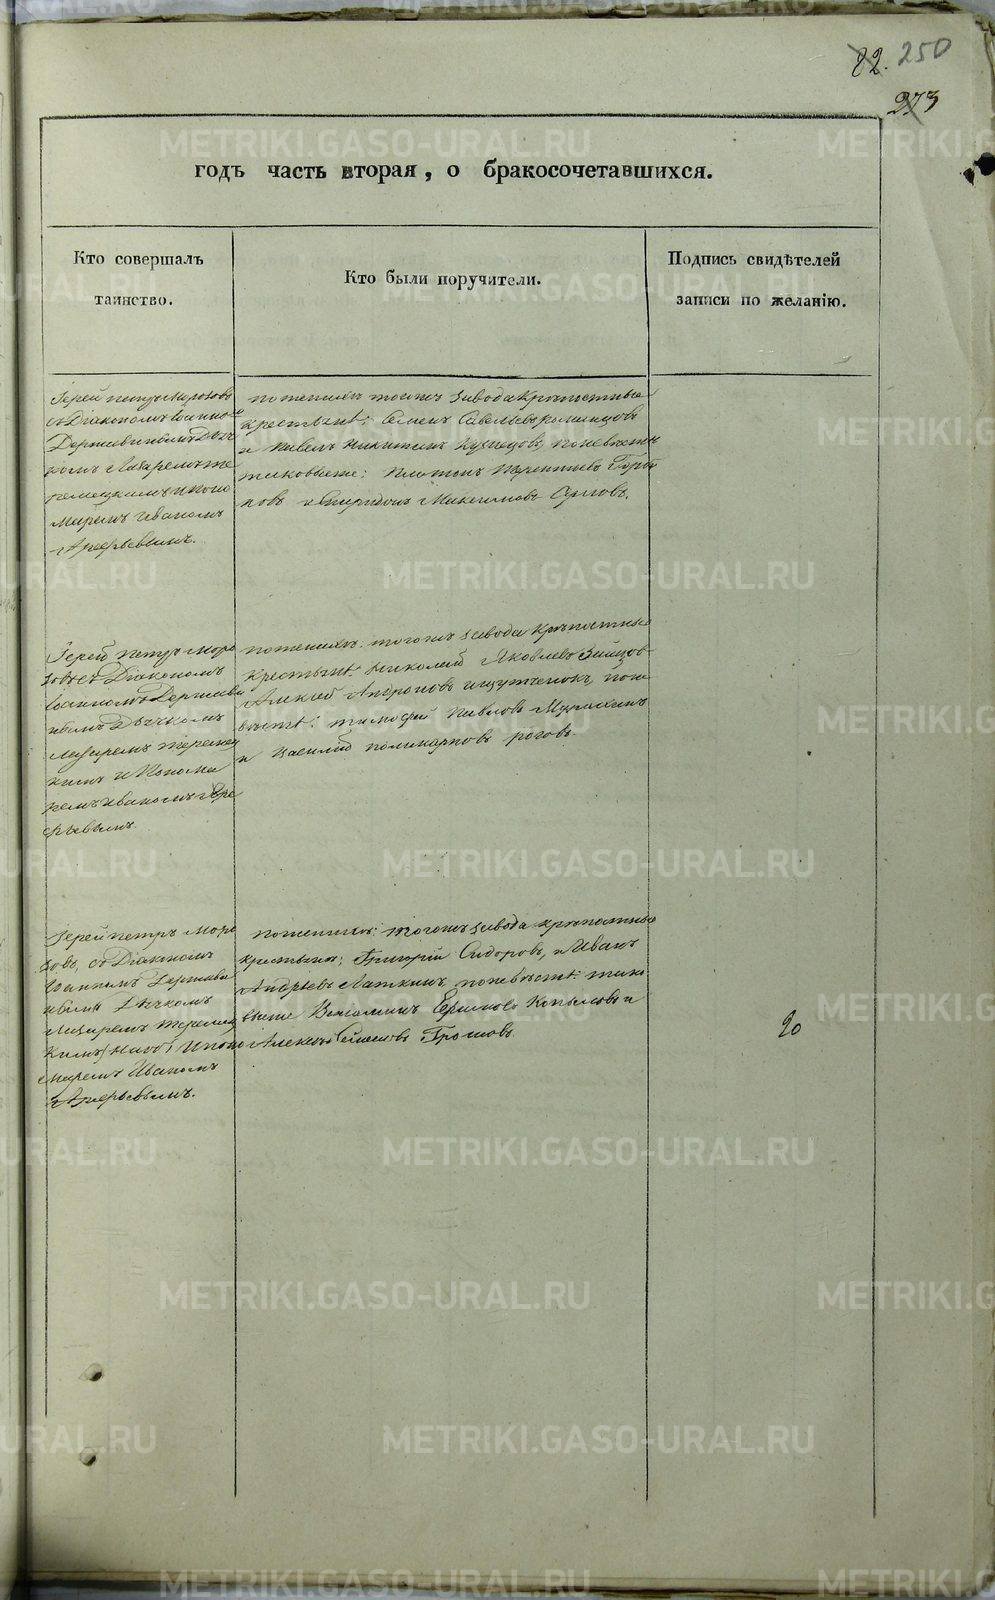 22. 250
273
годъ часть вторая, о бракосочетавшихся.
Кто совершалъ
таинство.
Кто были поручители.
Подпись свидѣтелей
записи по желанію.
Іерей Петръ Морозовъ
съ Діакономъ Іоанно
Державинымъ Дьяч
комъ Лазаремъ Те
ремецкимъ и Поно
маремъ Иваномъ
Арефьевымъ.
по женихѣ тогожъ завода крѣпостные
крестьянѣ: Семенъ Савельевъ
и Павелъ Никитинъ Кузнецовъ, по невѣсты
таковыеже: Платонъ Терентьевъ Горбу
новъ и Спиридонъ Максимовъ Орловъ.
Іерей Петръ Моро
зовъ съ Діакономъ
Іоанномъ Держави
нымъ Дьячкомъ
Лазаремъ Теремец
кимъ и Понома
ремъ Иваномъ Аре
фьевымъ.
по женихѣ: тогожъ завода крѣпостные
крестьянѣ: Николай Яковлевъ
Алексей Андроновъ по не
вѣстѣ: Тимофей Павловъ
и Василий Поликарповъ Роговъ.
Іерей Петръ Моро
зовъ, съ Діакономъ
Іоанномъ Держави
нымъ Дьячкомъ
Лазаремъ Теремец
кимъ и Поно
маремъ Иваномъ
Арефьевымъ.
по женихѣ: тогожъ завода крѣпостные
крестьяна; Григорій Сидоровъ, и Иванъ
Андреевъ Латкинъ, по невѣстѣ: тако
выеже Веньаминъ Копыловъ и
Алексѣй Семеновъ Грошовъ.
20
METRIKI.GASO-URAL.RU